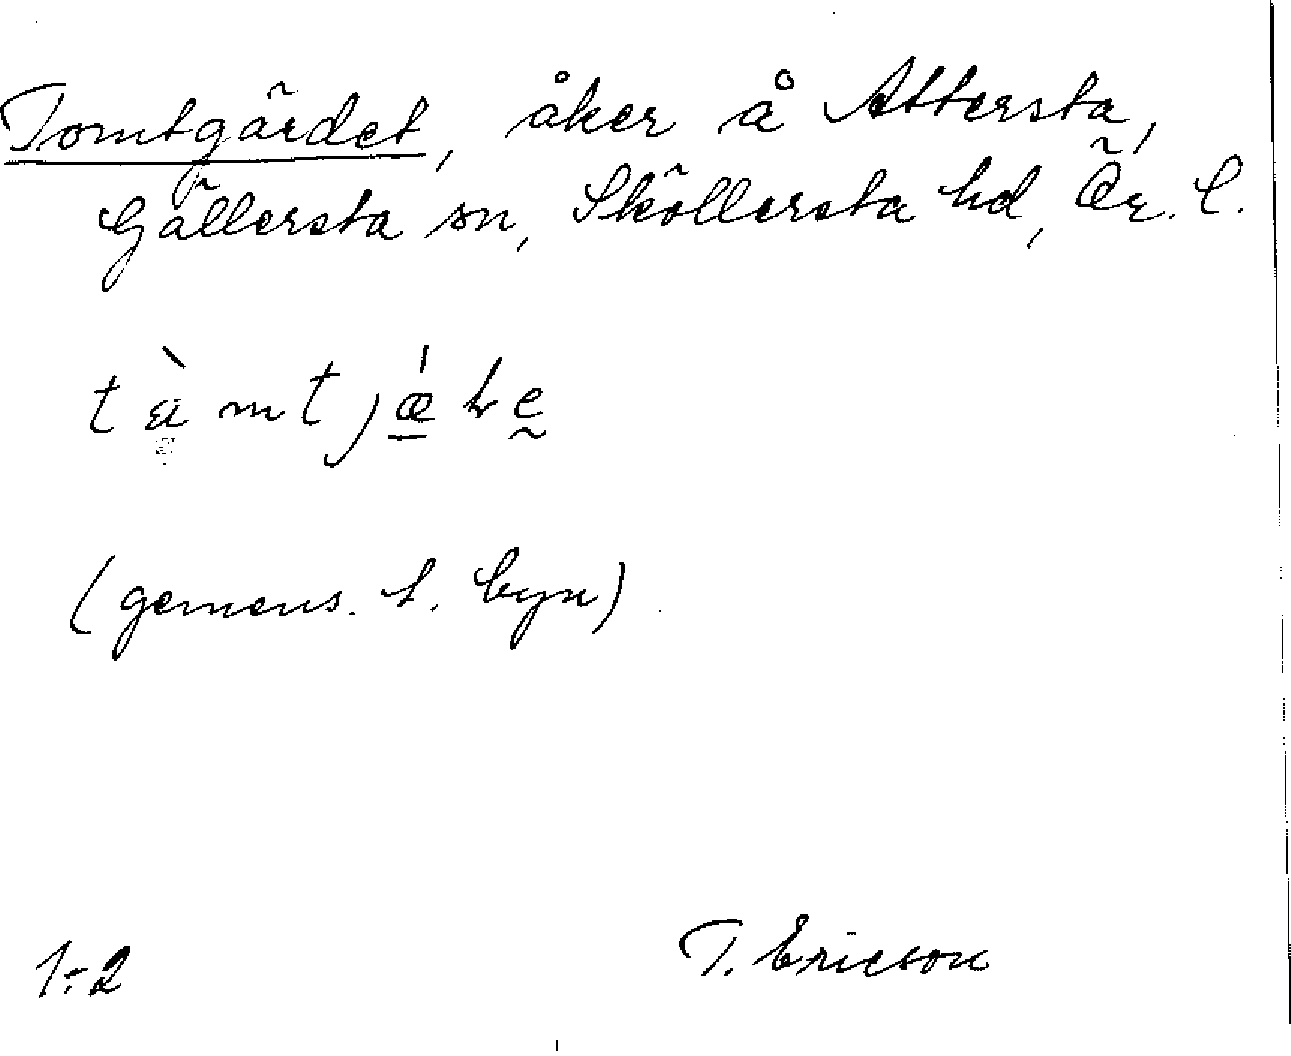 Tomtgärdet, åker å Attersta,
Gällersta sn, Sköllersta hd, Ör. l.
(gemens. t. byn)
1:2
T. Ericson